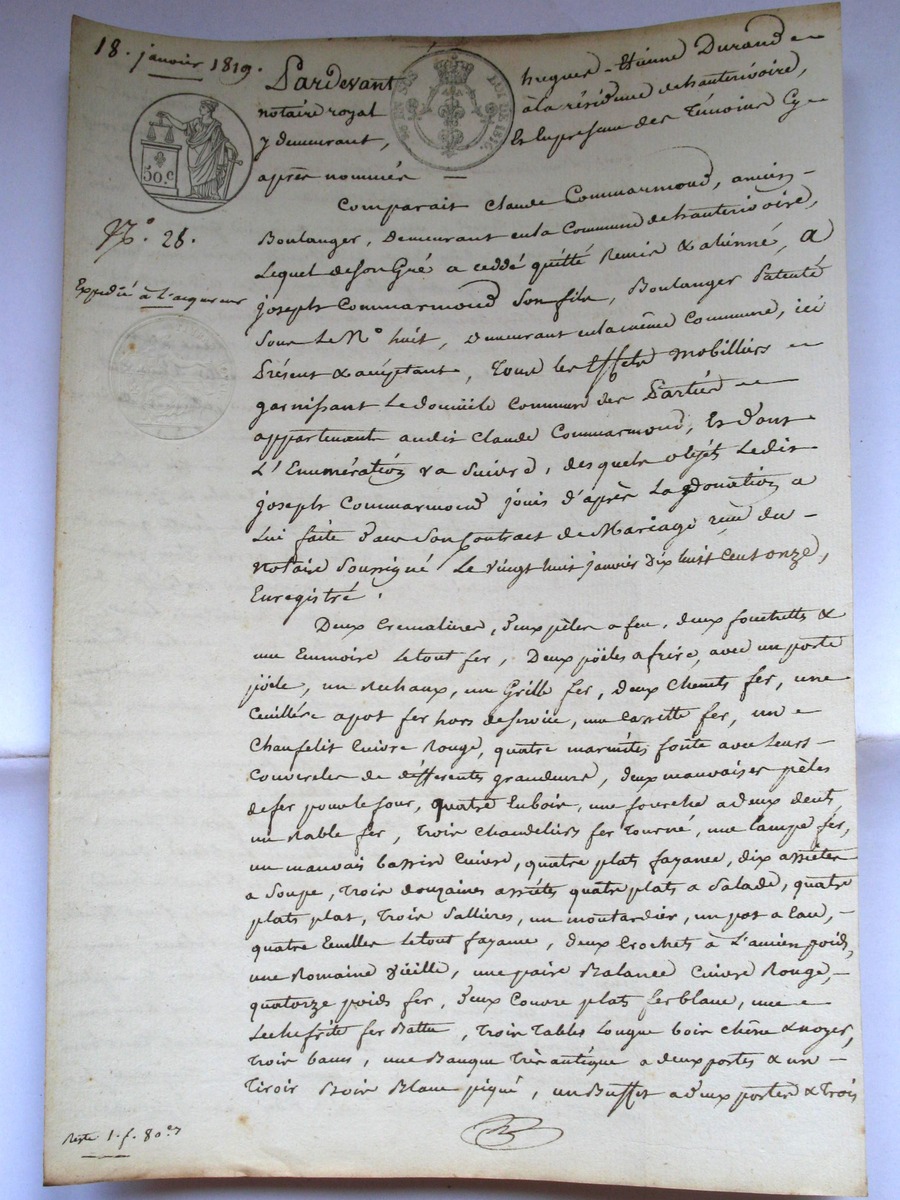 18. janvier 1819.
Pardevant hugues-Etienne Durand
notaire royal à la résidence de hauterivoire,
y demeurant, Et En présence des Témoins Cy
après nommés
50.C
LOI DE 1816.
N.° 28.
Expédié à L'acquereur
Comparait Claude Commarmond, ancien
Boulanger, Demeurant en la Commune de hauterivoire,
Lequel de son Gré a ceddé quitté Remis & aliénné, a
joseph Commarmond son fils, Boulanger Patenté
sous Le N.° huit, Demeurant en la même Commune, ici
Présent & acceptant, Tous les Effets mobilliers
garnissant Le domicile Commun des Parties
appartenants audit Claude Commarmond, Et dont
L'Enumération va suivre, desquels objets Ledit
joseph Commarmond jouis d'après La donation a
Lui faite dans son Contrat de Mariage reçu du
notaire soussigné Le vingt huit janvier dix huit Cent onze,
Enregistré.
Deux Cremalines, deux pèles a feu, deux fouchetts &
un Emmoire Le tout fer, Deux poëles a frire, avec un porte
poële, un Rechaux, un Grille fer, deux Chenets fer, une
Ceuillére a pot fer hors de service, une Cassette fer, un
Chaufelit Cuivre Rouge, quatre marmites fonte avec Leurs
Couvercles de différentes grandeurs, deux mauvaises pèles
de fer pour le four, quatre En bois, une fourche a deux dents,
un Rable fer, Trois Chandeliers fer Tourné, une Lampe fer,
un mauvais bassin Cuivre, quatre plats fayance, dix assiétes
a Soupe, Trois douzaines assiétes, quatre plats a Salade, quatre
plats plat, Trois Sallières, un moutardier, un pot a Eau,
quatre Ecuelles Le tout fayance, deux Crochets à L'ancien poids,
une Romaine vieille, une paire Balance Cuivre Rouge,
quatorze poids fer, deux Couvre plats fer blanc, une
Lechefrite fer Battu, Trois Tables Longue bois chêne & noyer,
Trois bancs, une Banque Très antique a deux portes & un
Tiroir Bois Blanc piqué, un Buffet a deux portes & Trois
Reste 1. f. 80 c.